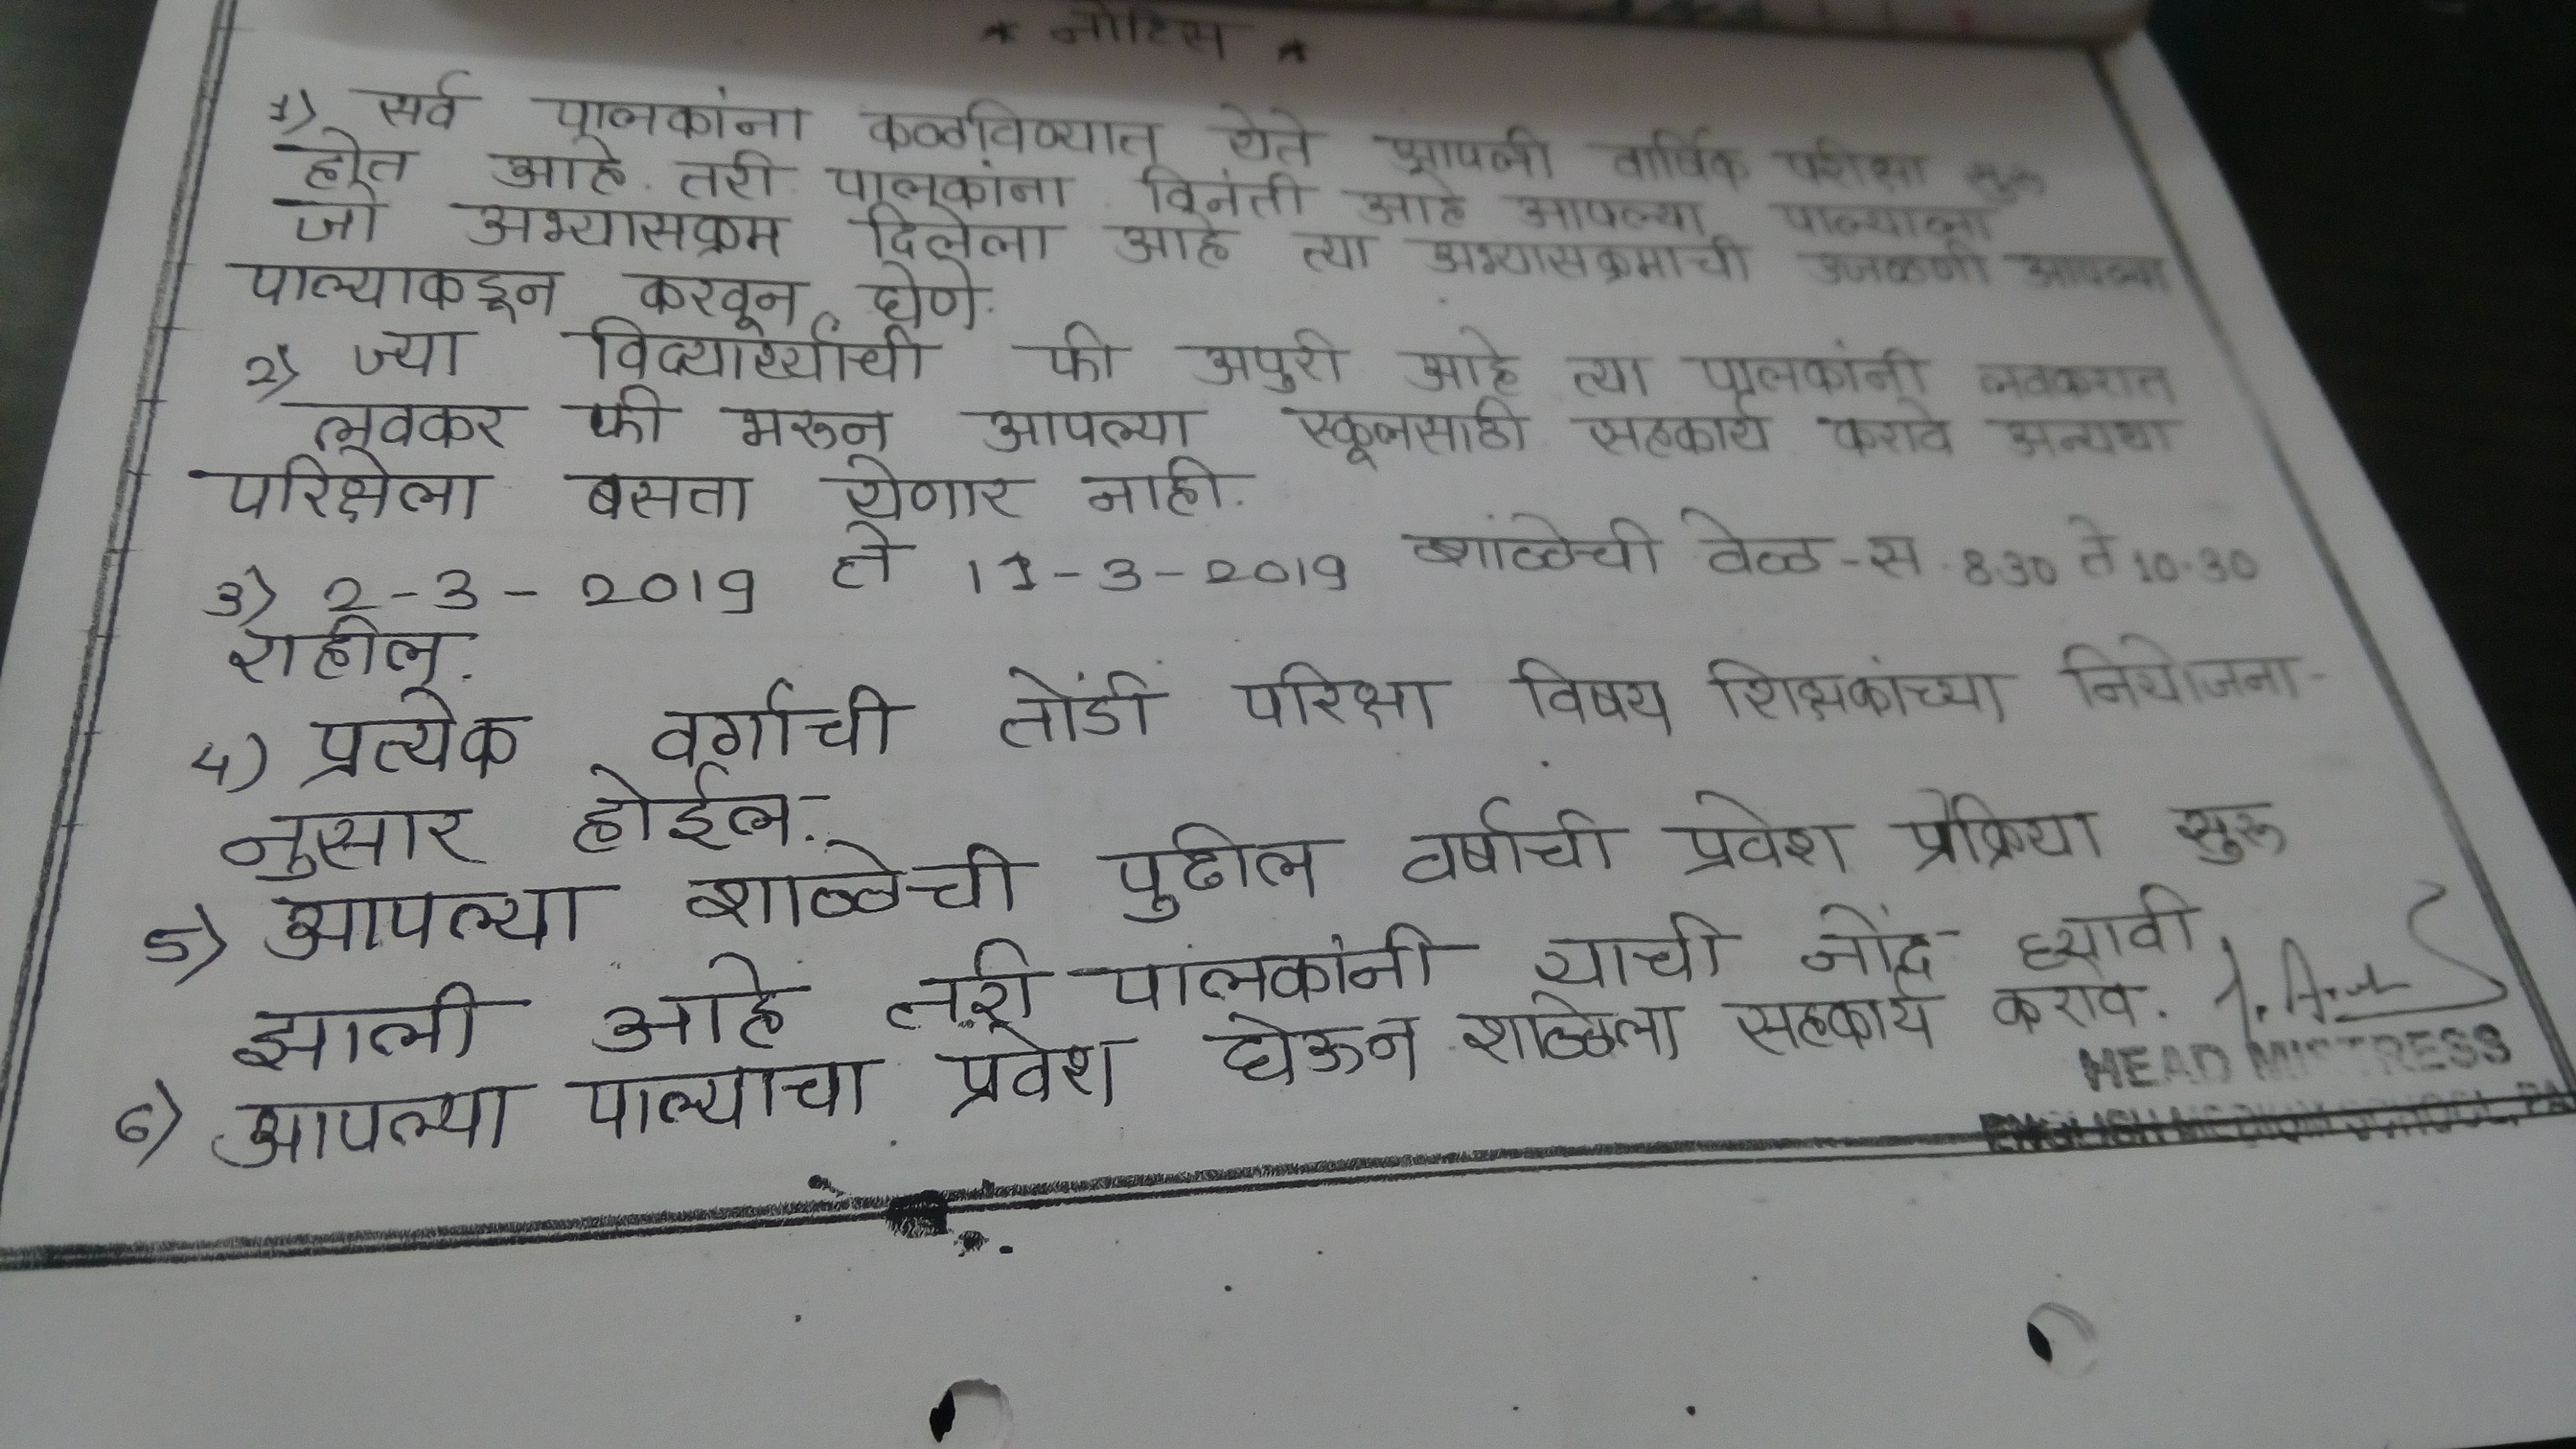 * नोटिस *
1) सर्व पालकांना कळविण्यात येते आपली वार्षिक परीक्षा सुरू
होत आहे. तरी पालकांना विनंती आहे आपल्या पाल्याला
जो अभ्यासक्रम दिलेला आहे त्या अभ्यासक्रमाची उजळणी आपल्या
पाल्याकडून करवून घेणे.
2) ज्या विद्यार्थ्यांची फी अपुरी आहे त्या पालकांनी लवकरात
लवकर फी भरून आपल्या स्कूलसाठी सहकार्य करावे अन्यथा
परिक्षेला बसता येणार नाही.
3) 2-3-2019 ते 11-3-2019 शांळेची वेळ -स. 8.30 ते 10.30
राहील.
4) प्रत्येक वर्गाची तोंडी परिक्षा विषय शिक्षकांच्या नियोजना-
नुसार होईल.
5) आपल्या शाळेची पुढील वर्षाची प्रवेश प्रेक्रिया सुरू
झाली आहे तरी पालकांनी याची नोंद घ्यावी
6) आपल्या पाल्याचा प्रवेश घेऊन शाळेला सहकार्य करावे.
HEAD MISTRESS
ENGLISH MEDIUM SCHOOL,